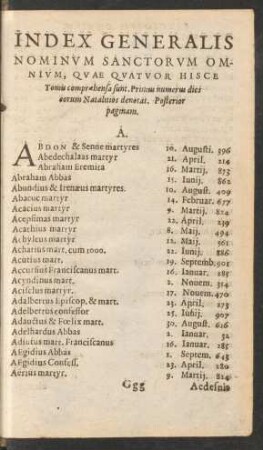 INDEX GENERALIS
NOMINVM SANCTORVM OM-
NIVM, QVAE QVATVOR HISCE
Tomis compræhensa sunt. Primus numerus diei
eorum Natalitios denotat. Posterior
paginam.
A.
ABDON & Senne martyres 20. Augusti. 396
Abedechalaas martyr 21. April. 214
Abraham Eremita 16. Martij. 873
Abraham Abbas 15. Iunij. 862
Abundius & Irenæus martyres. 10. August. 409
Abacuc martyr 14. Februar. 677
Acacius martyr 9. Martij. 824
Acepsimas martyr 22. April. 239
Acachius martyr 8. Maij. 494
Achyleus martyr 12. Maij. 561
Acharius mart. cum 1000. 22. Iunij. 886
Acutius mart. 19. Septemb.
Accursius Franciscanus mart. 16. Ianuar. 185
Acyndinus mart. 2. Nouem. 514
Acisclus martyr. 17. Nouem. 470
Adalbertus Episcop, & mart. 23. April. 273
Adelbertus confessor 25. Iunij. 907
Adauctus & Fœlix mart. 30. August. 616
Adelhardus Abbas 2. Ianuar. 52
Adiutus mart. Franciscanus 16. Ianuar. 185
Aegidius Abbas 1. Septem. 645
Aegidius Confess. 23. April. 280
Aërius martyr. 9. Martij. 824
Ggg Aedesius